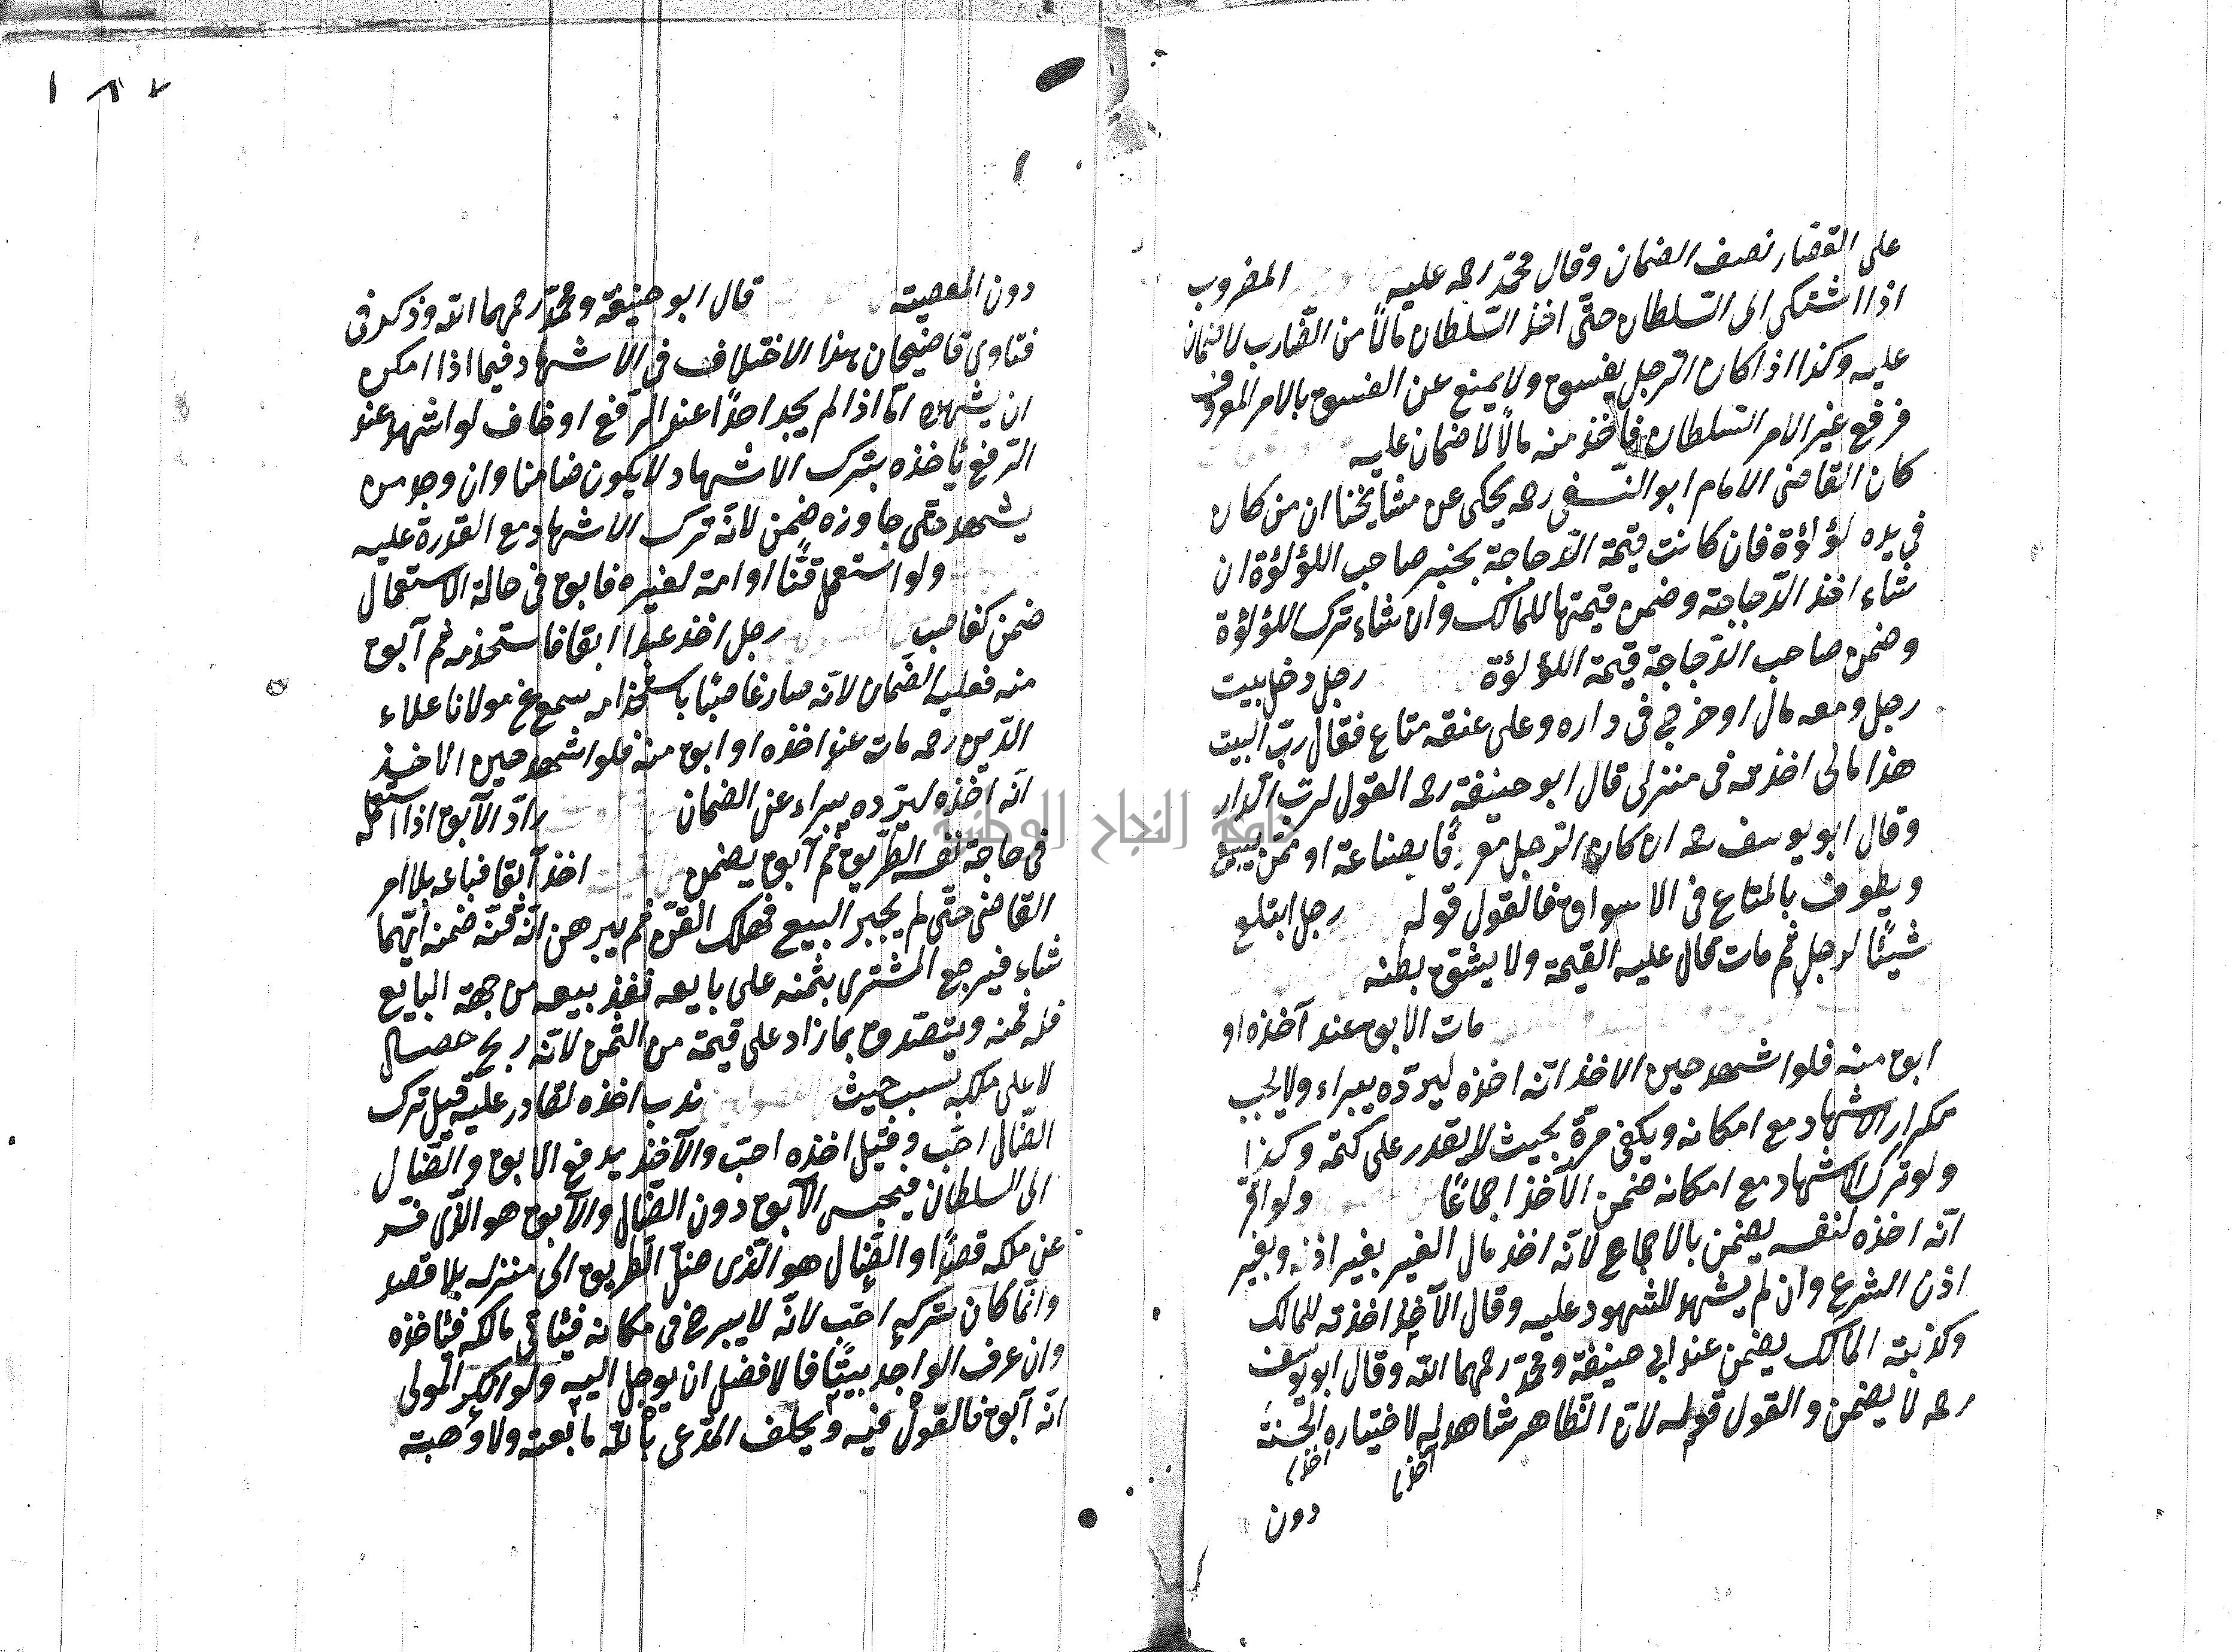 على القصار نصف الضمان وقال محمد رحمه عليه المضروب
اذا اشتكى الى السلطان حتى اخذ السلطان مالا من الضارب لا ضمان
عليه وكذا اذا كان الرجل يفسق ولا يمنع عن الفسق بالامر المعروف
فرفع غير الامر السلطان فاخذ منه مالا لا ضمان عليه
كان القاضى الامام ابو النسفى رحمه يحكى عن مشايخنا ان من كان
فى يده لؤلؤة فان كانت قيمة الدجاجة يخير صاحب اللؤلؤة ان
شاء اخذ الدجاجة وضمن قيمتها للمالك وان شاء ترك اللؤلؤة
وضمن صاحب الدجاجة قيمة اللؤلؤة رجل دخل بيت
رجل ومعه مال او خرج فى داره وعلى عنقه متاع فقال رب البيت
هذا مالى اخذته فى منزلى قال ابو حنيفة رحمه القول لرب الدار
وقال ابو يوسف رحمه ان كان الرجل معرفا بصناعة او ممن يبيع
ويطوف بالمتاع فى الاسواق فالقول قوله رجل ابتلع
شيئا لرجل ثم مات كمال عليه القيمة ولا يشق بطنه
مات الابق عند آخذه او
ابق منه فلو اشهد حين الاخذ انه اخذه ليرده يبراء ولا يجب
تكرار الاشهاد مع امكانه ويكفى مرة بحيث لا يقدر على كتمه وكذا
ولو ترك الاشهاد مع امكانه ضمن الآخذ اجماعا ولو اقر
انه اخذه لنفسه يضمن بالاجماع لانه اخذ مال الغير بغير اذنه وبغير
اذن الشرع وان لم يشهد للشهود عليه وقال الآخذ اخذته للمالك
وكذبته المالك يضمن عند ابى حنيفة ومحمد رحمهما الله وقال ابو يوسف
رحمه لا يضمن والقول قوله لان الظاهر شاهد له لاختياره الحسنة
دون
١٨٧
دون المعصية قال ابو حنيفة ومحمد رحمهما الله وذكر فى
فتاوى قاضيخان هذا الاختلاف فى الاشهاد فيما اذا امكن
ان يشهده اما اذا لم يجد احدا عند الرفع او خاف لو اشهد عند
الرفع ياخذه بترك الاشهاد لا يكون ضامنا وان وجد من
يشهد حتى جاوزه ضمن لانه ترك الاشهاد مع القدرة عليه
ولو استعمل قنا او امة لغيره فابق فى حالة الاستعمال
ضمن كغاصب رجل اخذ عبدا ابقا فاستخدمه ثم آبق
منه فعليه الضمان لانه صار غاصبا باستخدامه سمع عن مولانا علاء
الدين رحمه مات عند اخذه او ابق منه فلو اشهد حين الاخذ
انه اخذه ليرده يبراء عن الضمان راد الآبق اذا استعمله
فى حاجة نفسه الطريق ثم آبق يضمن اخذ آبقا فباعه بلا امر
القاضى حتى لم يجبر البيع فهلك القن ثم يبرهن انه قنه ضمنه ايهما
شاء فيرجع المشترى بثمنه على بايعه نفذ بيعه من جهة البايع
فله ثمنه ويتصدق بما زاد على قيمته من الثمن لانه ربح حصل
لا على ملكه بسبب حيث ندب اخذه لقادر عليه قيل ترك
الضال احب وقيل اخذه احب والآخذ يدفع الابق والضال
الى السلطان فيحبس الآبق دون الضال والآبق هو الذى فر
عن ملكه قصدا والضال هو الذى ضل الطريق الى منزله بلا قصد
وانما كان تركه احب لانه لا يبرح فى مكانه فيئاتى مالكه فيئاخذه
وان عرف الواجد بيتا فالافضل ان يوجل اليه ولو انكر المولى
انه آبق فالقول فيه ويحلف المدعى بالله ما بعته ولا وهبته
جامعة النجاح الوطنية